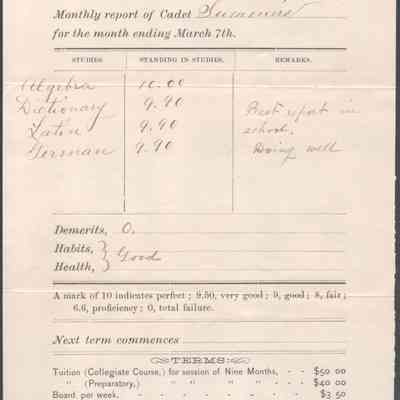 Monthly report of Cadet Summers
for the month ending March 7th.
STUDIES. STANDING IN STUDIES. REMARKS.
Algebra 10.00
Dictionary 9.90 Best report in
Latin 9.90 school.
German 9.90 Doing well
Demerits, 0.
Habits, } Good
Health,
A mark of 10 indicates perfect; 9.50, very good; 9, good; 8, fair;
6.6, proficiency; 0, total failure.
Next term commences
TERMS:
Tuition (Collegiate Course,) for session of Nine Months, - - $50 00
" (Preparatory,) " " " " - - $40 00
Board per week, - - - - - - - $3 50